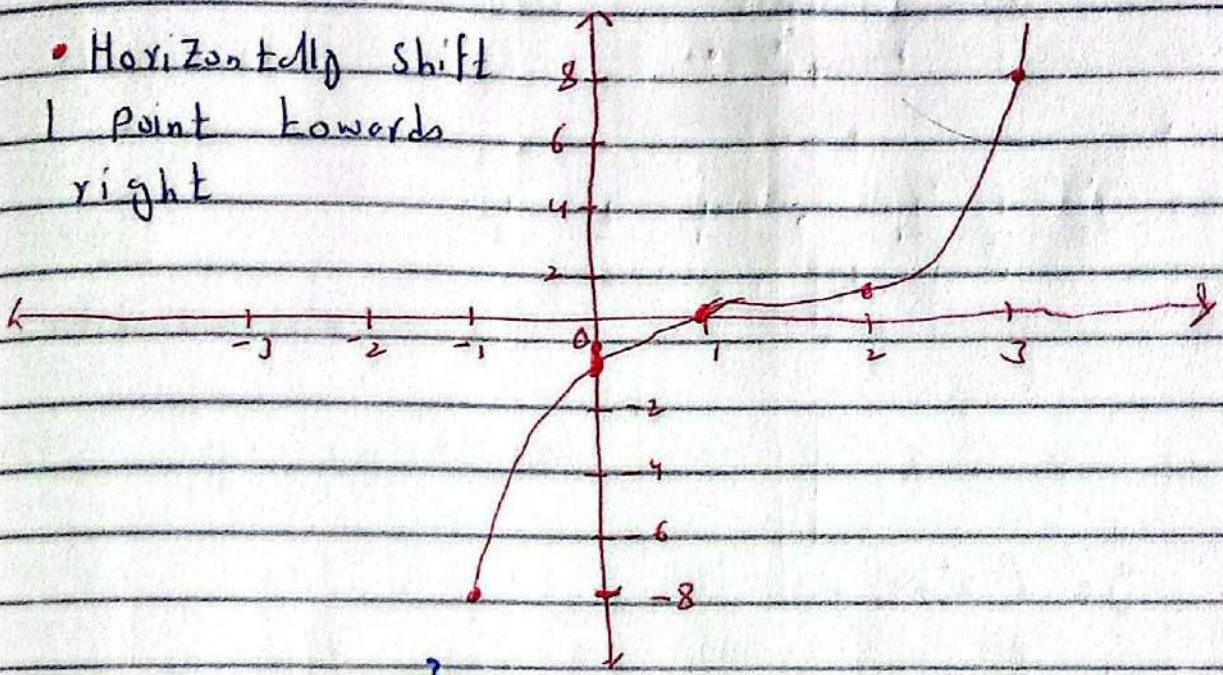 • Horizontally shift
1 point towards
right
8
6
4
2
-3 -2 -1 0 1 2 3
-2
-4
-6
-8